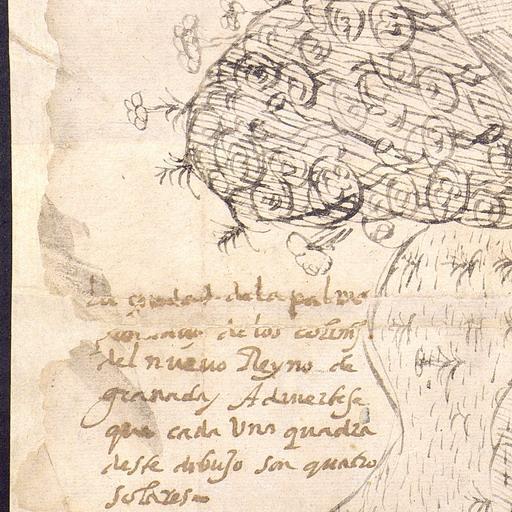 La ciudad de la palma
de los colim[s]
del nuevo Reyno de
granada, Adviertese
que cada Una quadra
deste dibujo son quatro
solares